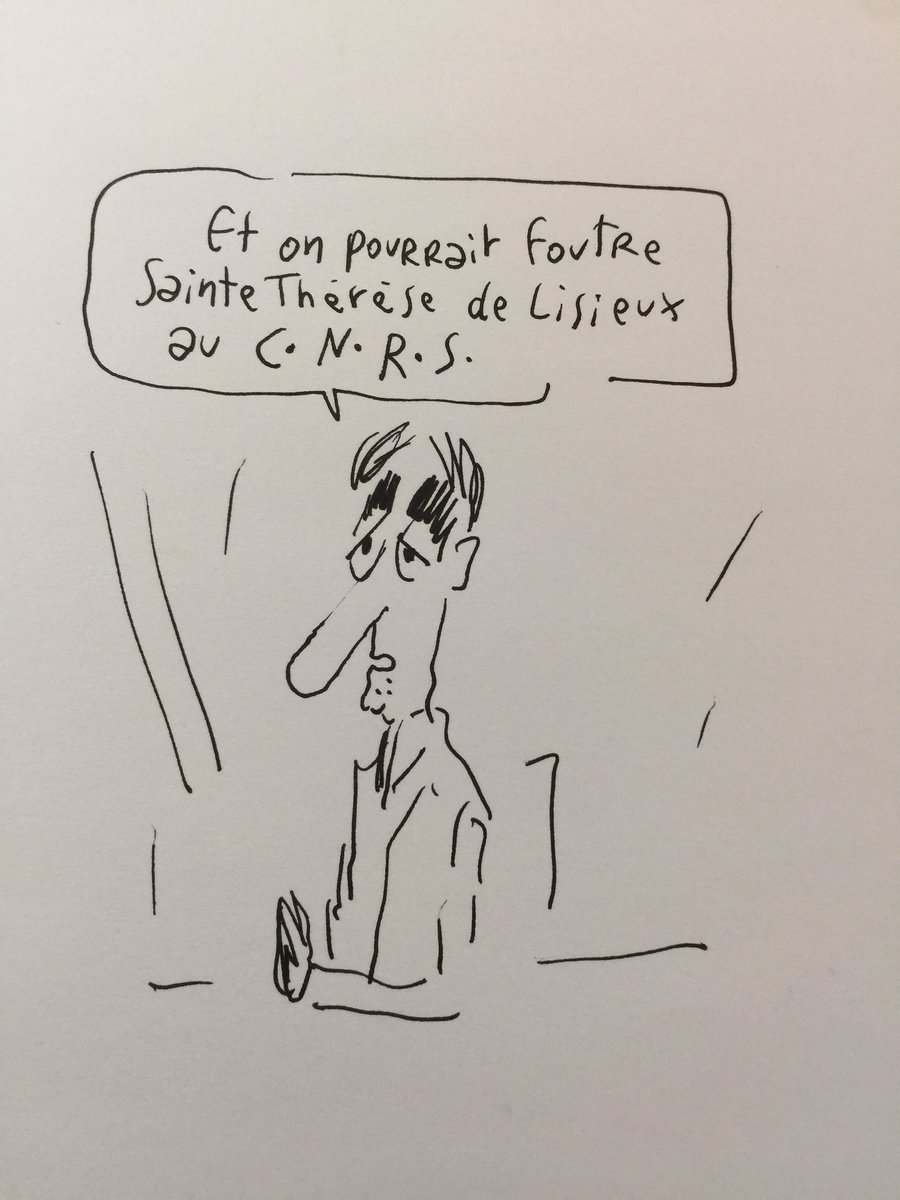 Et on pourrait foutre
Sainte Thérèse de Lisieux
au C.N.R.S.